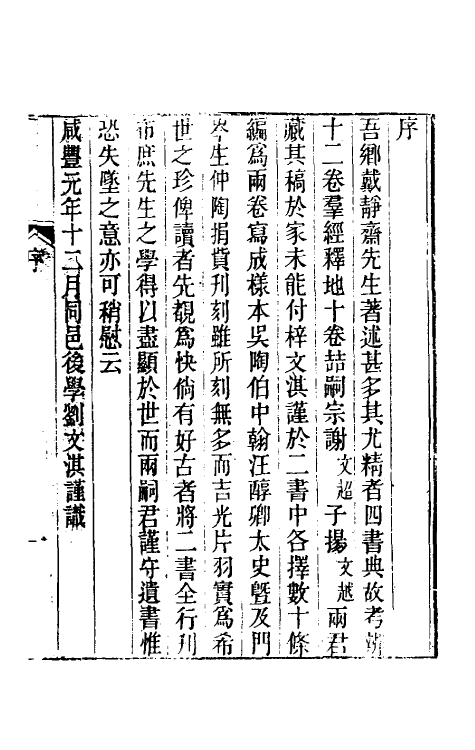 序
吾鄉戴靜齋先生著述甚多其尤精者四書典故考
十二卷羣經釋地十卷喆嗣宗謝文超子揚文越兩君
藏其稿於家未能付梓文淇謹於二書中各擇數十條
編爲兩卷寫成樣本吳陶伯中翰汪醇卿太史曁及門
岑生仲陶捐貲刊刻雖所刻無多而吉光片羽實爲希
世之珍俾讀者先覩爲快倘有好古者將二書全行刊
布庶先生之學得以盡顯於世而兩嗣君謹守遺書惟
恐失墜之意亦可稍慰云
咸豐元年十二月同邑後學劉文淇謹識
序
一